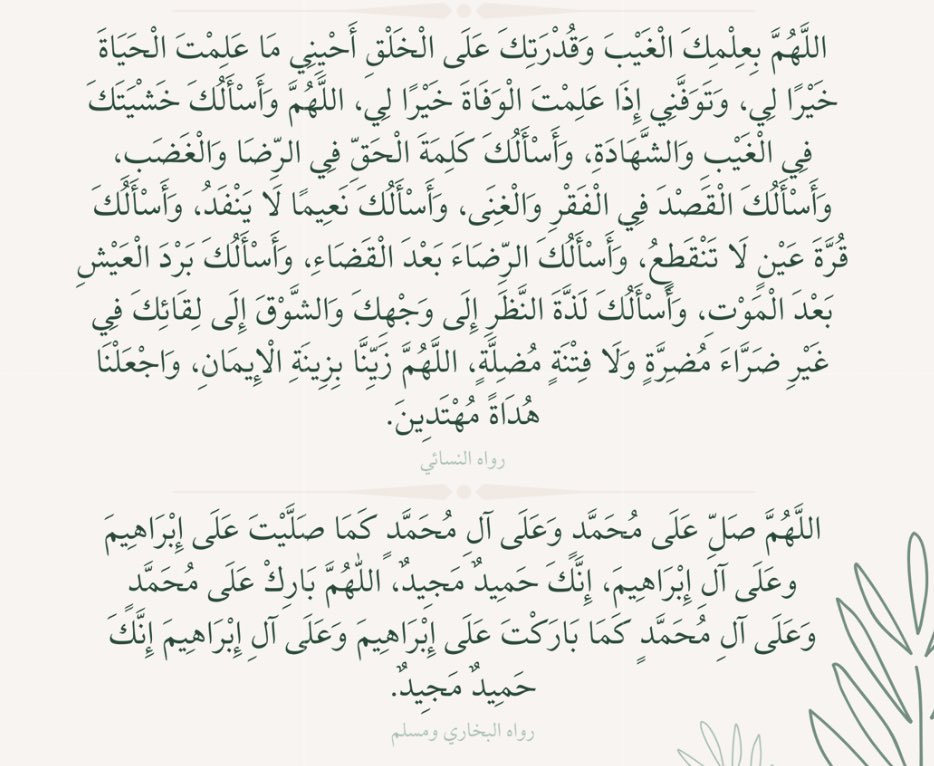 اللَّهُمَّ بِعِلْمِكَ الْغَيْبَ وَقُدْرَتِكَ عَلَى الْخَلْقِ أَحْيِنِي مَا عَلِمْتَ الْحَيَاةَ
خَيْرًا لِي، وَتَوَفَّنِي إِذَا عَلِمْتَ الْوَفَاةَ خَيْرًا لِي، اللَّهُمَّ وَأَسْأَلُكَ خَشْيَتَكَ
فِي الْغَيْبِ وَالشَّهَادَةِ، وَأَسْأَلُكَ كَلِمَةَ الْحَقِّ فِي الرِّضَا وَالْغَضَبِ،
وَأَسْأَلُكَ الْقَصْدَ فِي الْفَقْرِ وَالْغِنَى، وَأَسْأَلُكَ نَعِيمًا لَا يَنْفَدُ، وَأَسْأَلُكَ
قُرَّةَ عَيْنٍ لَا تَنْقَطِعُ، وَأَسْأَلُكَ الرِّضَاءَ بَعْدَ الْقَضَاءِ، وَأَسْأَلُكَ بَرْدَ الْعَيْشِ
بَعْدَ الْمَوْتِ، وَأَسْأَلُكَ لَذَّةَ النَّظَرِ إِلَى وَجْهِكَ وَالشَّوْقَ إِلَى لِقَائِكَ فِي
غَيْرِ ضَرَّاءَ مُضِرَّةٍ وَلَا فِتْنَةٍ مُضِلَّةٍ، اللَّهُمَّ زَيِّنَّا بِزِينَةِ الْإِيمَانِ، وَاجْعَلْنَا
هُدَاةً مُهْتَدِينَ.
رواه النسائي
اللَّهُمَّ صَلِّ عَلَى مُحَمَّدٍ وَعَلَى آلِ مُحَمَّدٍ كَمَا صَلَّيْتَ عَلَى إِبْرَاهِيمَ
وعَلَى آلِ إِبْرَاهِيمَ، إِنَّكَ حَمِيدٌ مَجِيدٌ، اللهُمَّ بَارِكْ عَلَى مُحَمَّدٍ
وَعَلَى آلِ مُحَمَّدٍ كَمَا بَارَكْتَ عَلَى إِبْرَاهِيمَ وَعَلَى آلِ إِبْرَاهِيمَ إِنَّكَ
حَمِيدٌ مَجِيدٌ.
رواه البخاري ومسلم